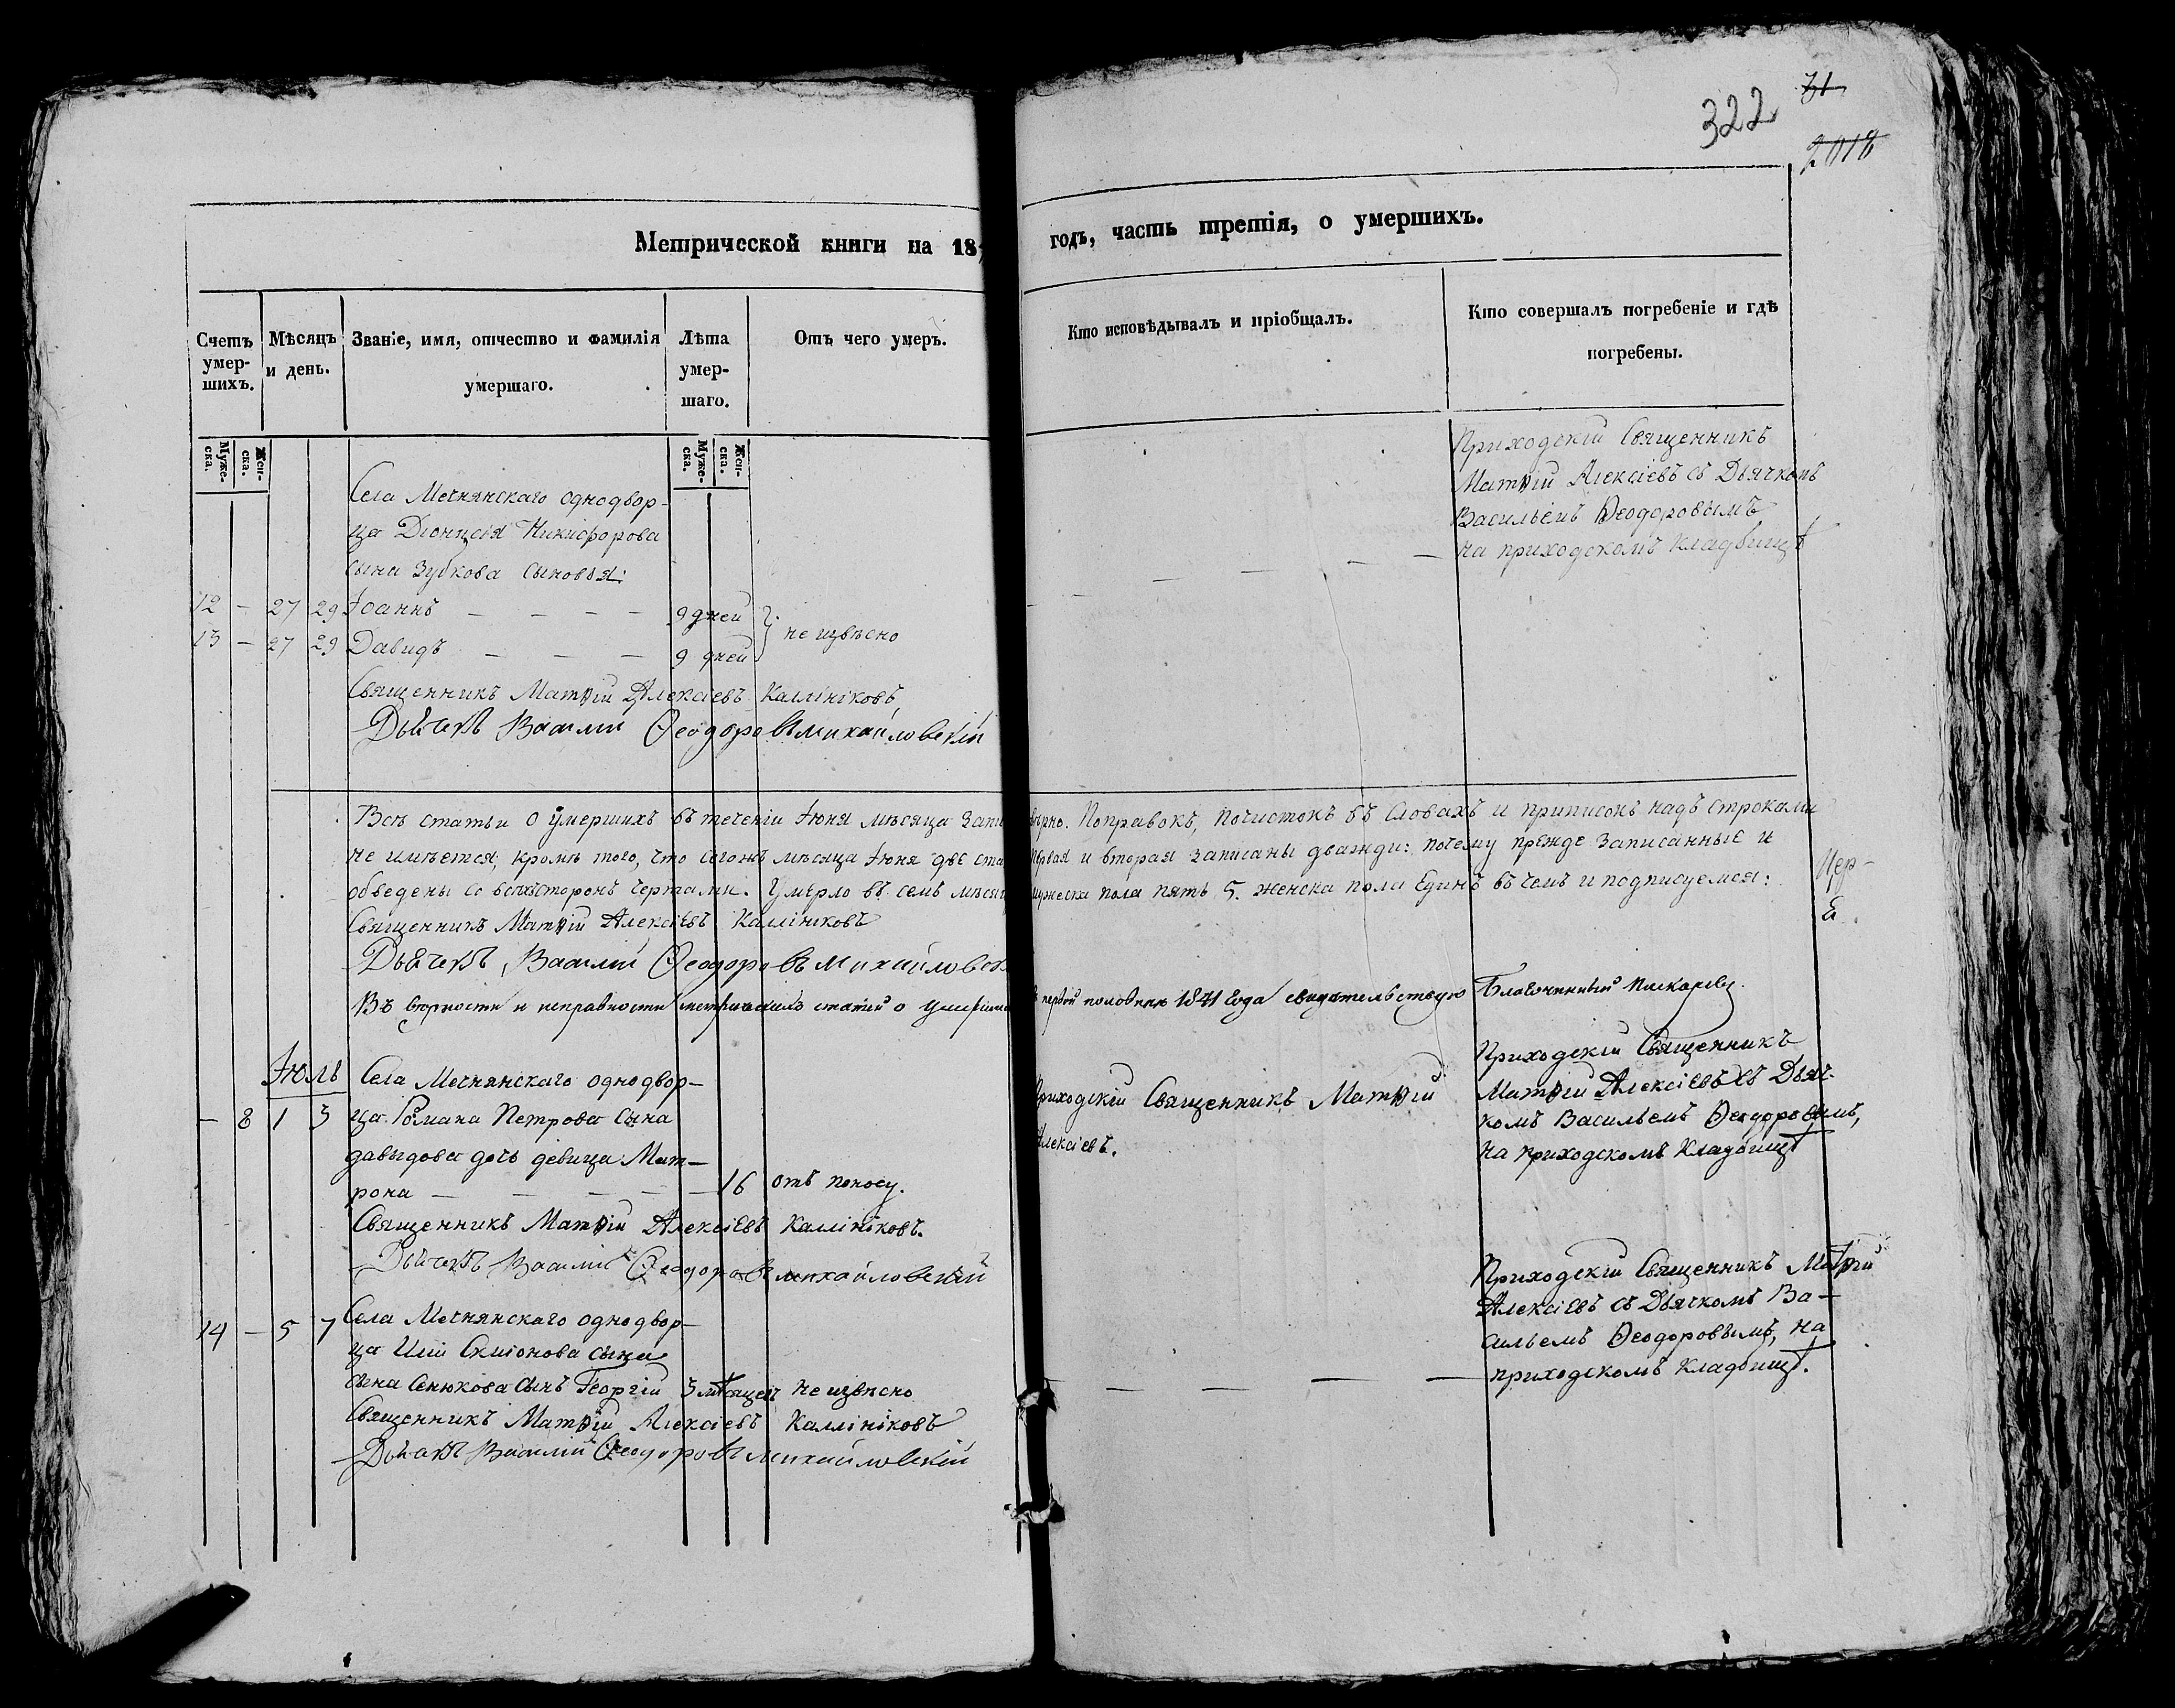 322
31
2018
Метрической книги на 18
годъ, часть третія, о умершихъ.
Счетъ умер-шихъ.
Мѣсяцъ и день.
Званіе, имя, отчество и фамилія умершаго.
Лѣта умер-шаго.
Отъ чего умеръ.
Кто исповѣдывалъ и пріобщалъ.
Кто совершалъ погребеніе и гдѣ погребены.
Муже-ска.
Жен-ска.
Муже-ска.
Жен-ска.
Села Мечнянскаго однодвор-
ца Діонисія Никифорова
сына Зубкова сыновья:
12 – 27 29 Іоаннъ – – – – 9 дней
13 – 27 29 Давидъ – – – 9 дней
не извѣсно
Приходскій Священникъ
Матѳій Алексіевъ съ Дьячкомъ
Васильемъ Ѳеодоровымъ
на приходскомъ кладбищѣ
Священникъ Матѳій Алексіевъ Каллініковъ
Дьячекъ Василий Ѳеодоровъ Михайловскій
Всѣ статьи о умершихъ въ теченіи Іюня мѣсяца запи вѣрно. Поправокъ, почистокъ въ словахъ и приписокъ надъ строками
не имѣется, кромѣ того, что сегожъ мѣсяца Іюня двѣ ста первая и вторая записаны дважди: почему прежде записанные и
обведены со всѣхъ сторонъ чертами. Умерло въ семъ мѣсяц мужеска пола пять 5. женска пола Единъ въ чемъ и подписуемся:
Священникъ Матѳій Алексіевъ Калініковъ
Дьячекъ, Василій Ѳеодоровъ Михайловск
Въ вѣрности и исправности метрическихъ статей о умерши первой половины 1841 года свидетельствую Благочинный Пискаревъ.
Цер-
Іюль
Села Мечнянскаго однодвор-
– 8 1 3 ца Романа Петрова сына
Давыдова дочь девица Мат-
рона – – – – – 16 отъ поносу.
Приходскій Священникъ Матѳій
Алексіевъ.
Приходскій Священникъ
Матѳій Алексіевъ съ Дьяч-
комъ Васильемъ Ѳеодоровымъ,
на приходскомъ кладбищѣ
Священникъ Матѳій Алексіевъ Калініковъ.
Дьячекъ Василій Ѳеодоровъ Михайловскій
Села Мечнянскаго однодвор-
14 – 5 7 ца Иліи Симіонова сына
сына Сенюкова сынъ Георгій 3 мѣсяцевъ не извѣсно
Приходскій Священникъ Матѳій
Алексіевъ съ Дьячкомъ Ва-
сильемъ Ѳеодоровымъ, на
приходскомъ кладбищѣ.
Священникъ Матѳій Алексіевъ Каллініковъ
Дьячекъ Василій Ѳеодоровъ Михайловскій